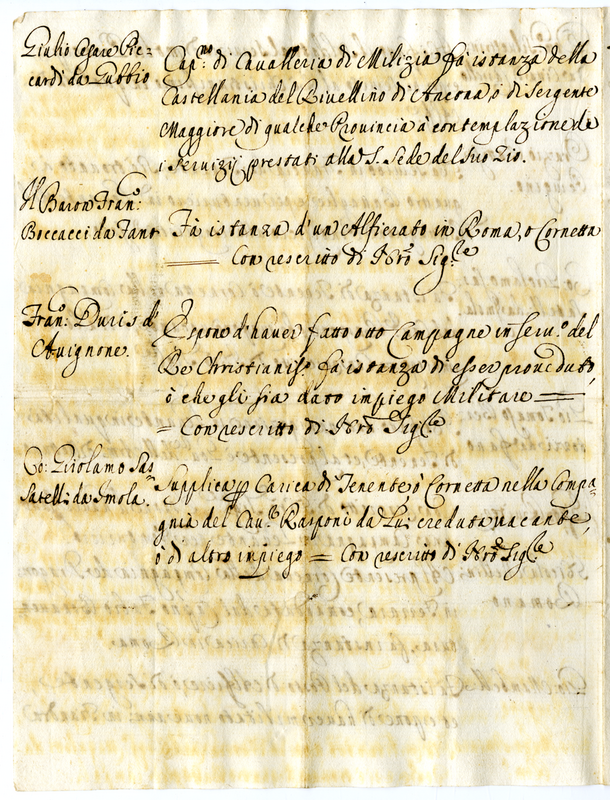 Giulio Cesare Pic=
cardi da Gubbio
Cap.no di Cavalleria di Milizia fà istanza della
Castellania del Rivellino di Ancona, ò di Sergente
Maggiore di qualche Provincia à contemplazione de
i servizij prestati alla S. Sede del suo Zio.
Il Baron Fran.co
Boccacci da Fano
Fà istanza d'un Alfierato in Roma, o Cornetta
Con rescritto di Nro Sig.re
Fran.co Duris d'
Avignone.
Espone d'haver fatto otto Campagne in serv.o del
Re Christianiss.o fà istanza di esser proveduto,
ò che gli sia dato impiego Militare =
= Con rescritto di Nro Sig.re
Co: Girolamo Sas=
satelli da Imola.
Supplica p Carica di Tenente, ò Cornetta nella Compa=
gnia del Cav.re Rasponi da Lui creduta vacante,
ò di altro impiego = Con rescritto di Nro Sig.re